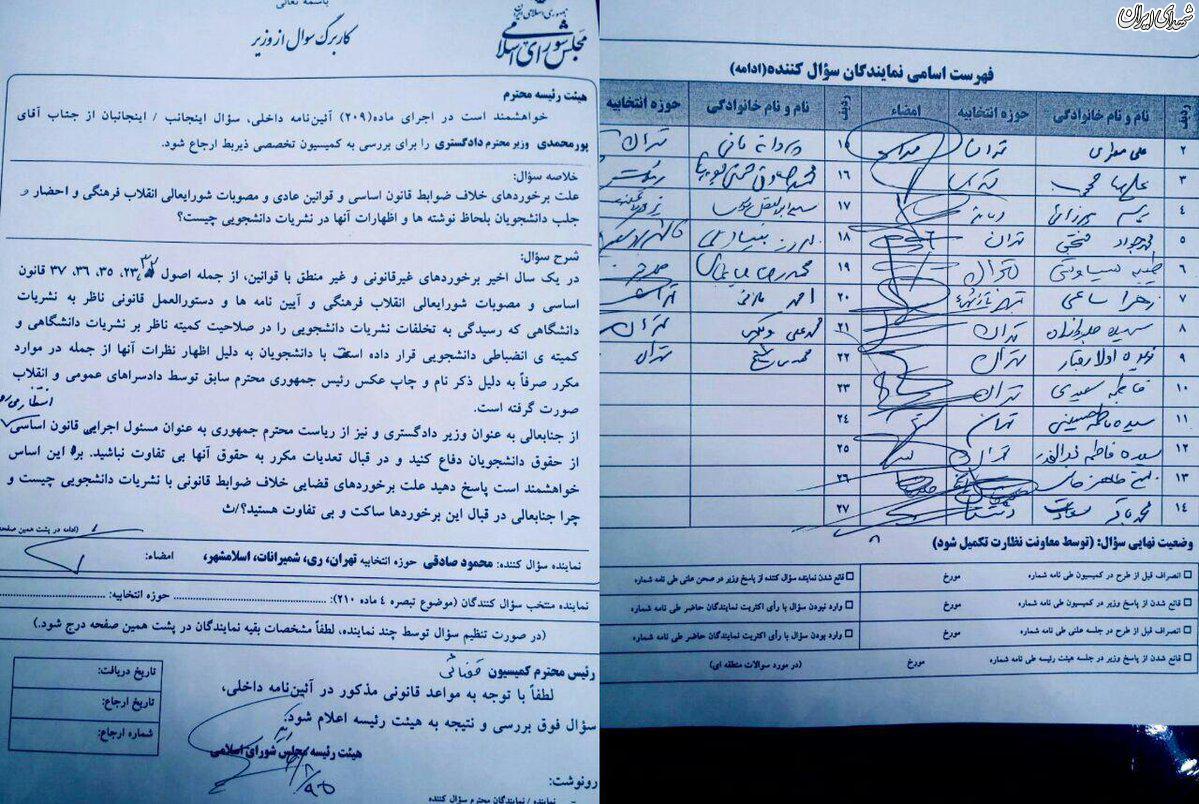 باسمه تعالی
جمهوری اسلامی ایران
مجلس شورای اسلامی
کاربرگ سوال از وزیر
هیئت رئیسه محترم
خواهشمند است در اجرای ماده(۲۰۹) آئین‌نامه داخلی، سؤال اینجانب / اینجانبان از جناب آقای
پورمحمدی وزیر محترم دادگستری را برای بررسی به کمیسیون تخصصی ذیربط ارجاع شود.
خلاصه سؤال:
علت برخوردهای خلاف ضوابط قانون اساسی و قوانین عادی و مصوبات شورایعالی انقلاب فرهنگی و احضار و
جلب دانشجویان بلحاظ نوشته ها و اظهارات آنها در نشریات دانشجویی چیست؟
شرح سؤال:
در یک سال اخیر برخوردهای غیرقانونی و غیر منطق با قوانین، از جمله اصول ۲۳، ۳۵، ۳۶، ۳۷ قانون
اساسی و مصوبات شورایعالی انقلاب فرهنگی و آیین نامه ها و دستورالعمل قانونی ناظر به نشریات
دانشگاهی که رسیدگی به تخلفات نشریات دانشجویی را در صلاحیت کمیته ناظر بر نشریات دانشگاهی و
کمیته ی انضباطی دانشجویی قرار داده است با دانشجویان به دلیل اظهار نظرات آنها از جمله در موارد
مکرر صرفاً به دلیل ذکر نام و چاپ عکس رئیس جمهوری محترم سابق توسط دادسراهای عمومی و انقلاب
صورت گرفته است.
انتظار می رود
از جنابعالی به عنوان وزیر دادگستری و نیز از ریاست محترم جمهوری به عنوان مسئول اجرایی قانون اساسی
از حقوق دانشجویان دفاع کنید و در قبال تعدیات مکرر به حقوق آنها بی تفاوت نباشید. بر این اساس
خواهشمند است پاسخ دهید علت برخوردهای قضایی خلاف ضوابط قانونی با نشریات دانشجویی چیست و
چرا جنابعالی در قبال این برخوردها ساکت و بی تفاوت هستید؟/ث
(ادامه در پشت همین صفحه
نماینده سؤال کننده: محمود صادقی حوزه انتخابیه تهران، ری، شمیرانات، اسلامشهر، امضاء:
نماینده منتخب سؤال کنندگان (موضوع تبصره ٤ ماده ۲۱۰): حوزه انتخابیه:
(در صورت تنظیم سؤال توسط چند نماینده، لطفاً مشخصات بقیه نمایندگان در پشت همین صفحه درج شود.)
رئیس محترم کمیسیون قضائی
لطفاً با توجه به مواعد قانونی مذکور در آئین‌نامه داخلی،
سؤال فوق بررسی و نتیجه به هیئت رئیسه اعلام شود.
هیئت رئیسه مجلس شورای اسلامی
تاریخ دریافت:
تاریخ ارجاع:
شماره ارجاع:
رونوشت:
- نماینده / نمایندگان محترم سؤال کننده
شهدای ایران
فهرست اسامی نمایندگان سؤال کننده(ادامه)
ردیف نام و نام خانوادگی حوزه انتخابیه امضاء ردیف نام و نام خانوادگی حوزه انتخابیه
۲ علی مطهری تهران ۱۵ پروانه مافی تهران
۳ علیرضا محجوب تهران ۱۶
٤ ۱۷
۵ محمدجواد فتحی تهران ۱۸
۶ طیبه سیاوشی تهران ۱۹
۷ زهرا ساعی ۲۰ احمد مازنی تهران
۸ تهران ۲۱ محمدعلی وکیلی تهران
۹ فریده اولادقباد تهران ۲۲ تهران
۱۰ فاطمه سعیدی تهران ۲۳
۱۱ سیده فاطمه حسینی تهران ۲٤
۱۲ سیده فاطمه ذوالقدر تهران ۲۵
۱۳ ۲۶
۱٤ محمدباقر سعادت دشتستان ۲۷
وضعیت نهایی سؤال: (توسط معاونت نظارت تکمیل شود)
انصراف قبل از طرح در کمیسیون طی نامه شماره مورخ قانع شدن نماینده سؤال کننده از پاسخ وزیر در صحن علنی طی نامه شماره
قانع شدن از پاسخ وزیر در کمیسیون طی نامه شماره مورخ وارد نبودن سؤال با رأی اکثریت نمایندگان حاضر طی نامه شماره
انصراف قبل از طرح در جلسه علنی طی نامه شماره مورخ وارد بودن سؤال با رأی اکثریت نمایندگان حاضر طی نامه شماره
قانع شدن از پاسخ وزیر در جلسه هیئت رئیسه طی نامه شماره مورخ (در مورد سوالات منطقه ای)